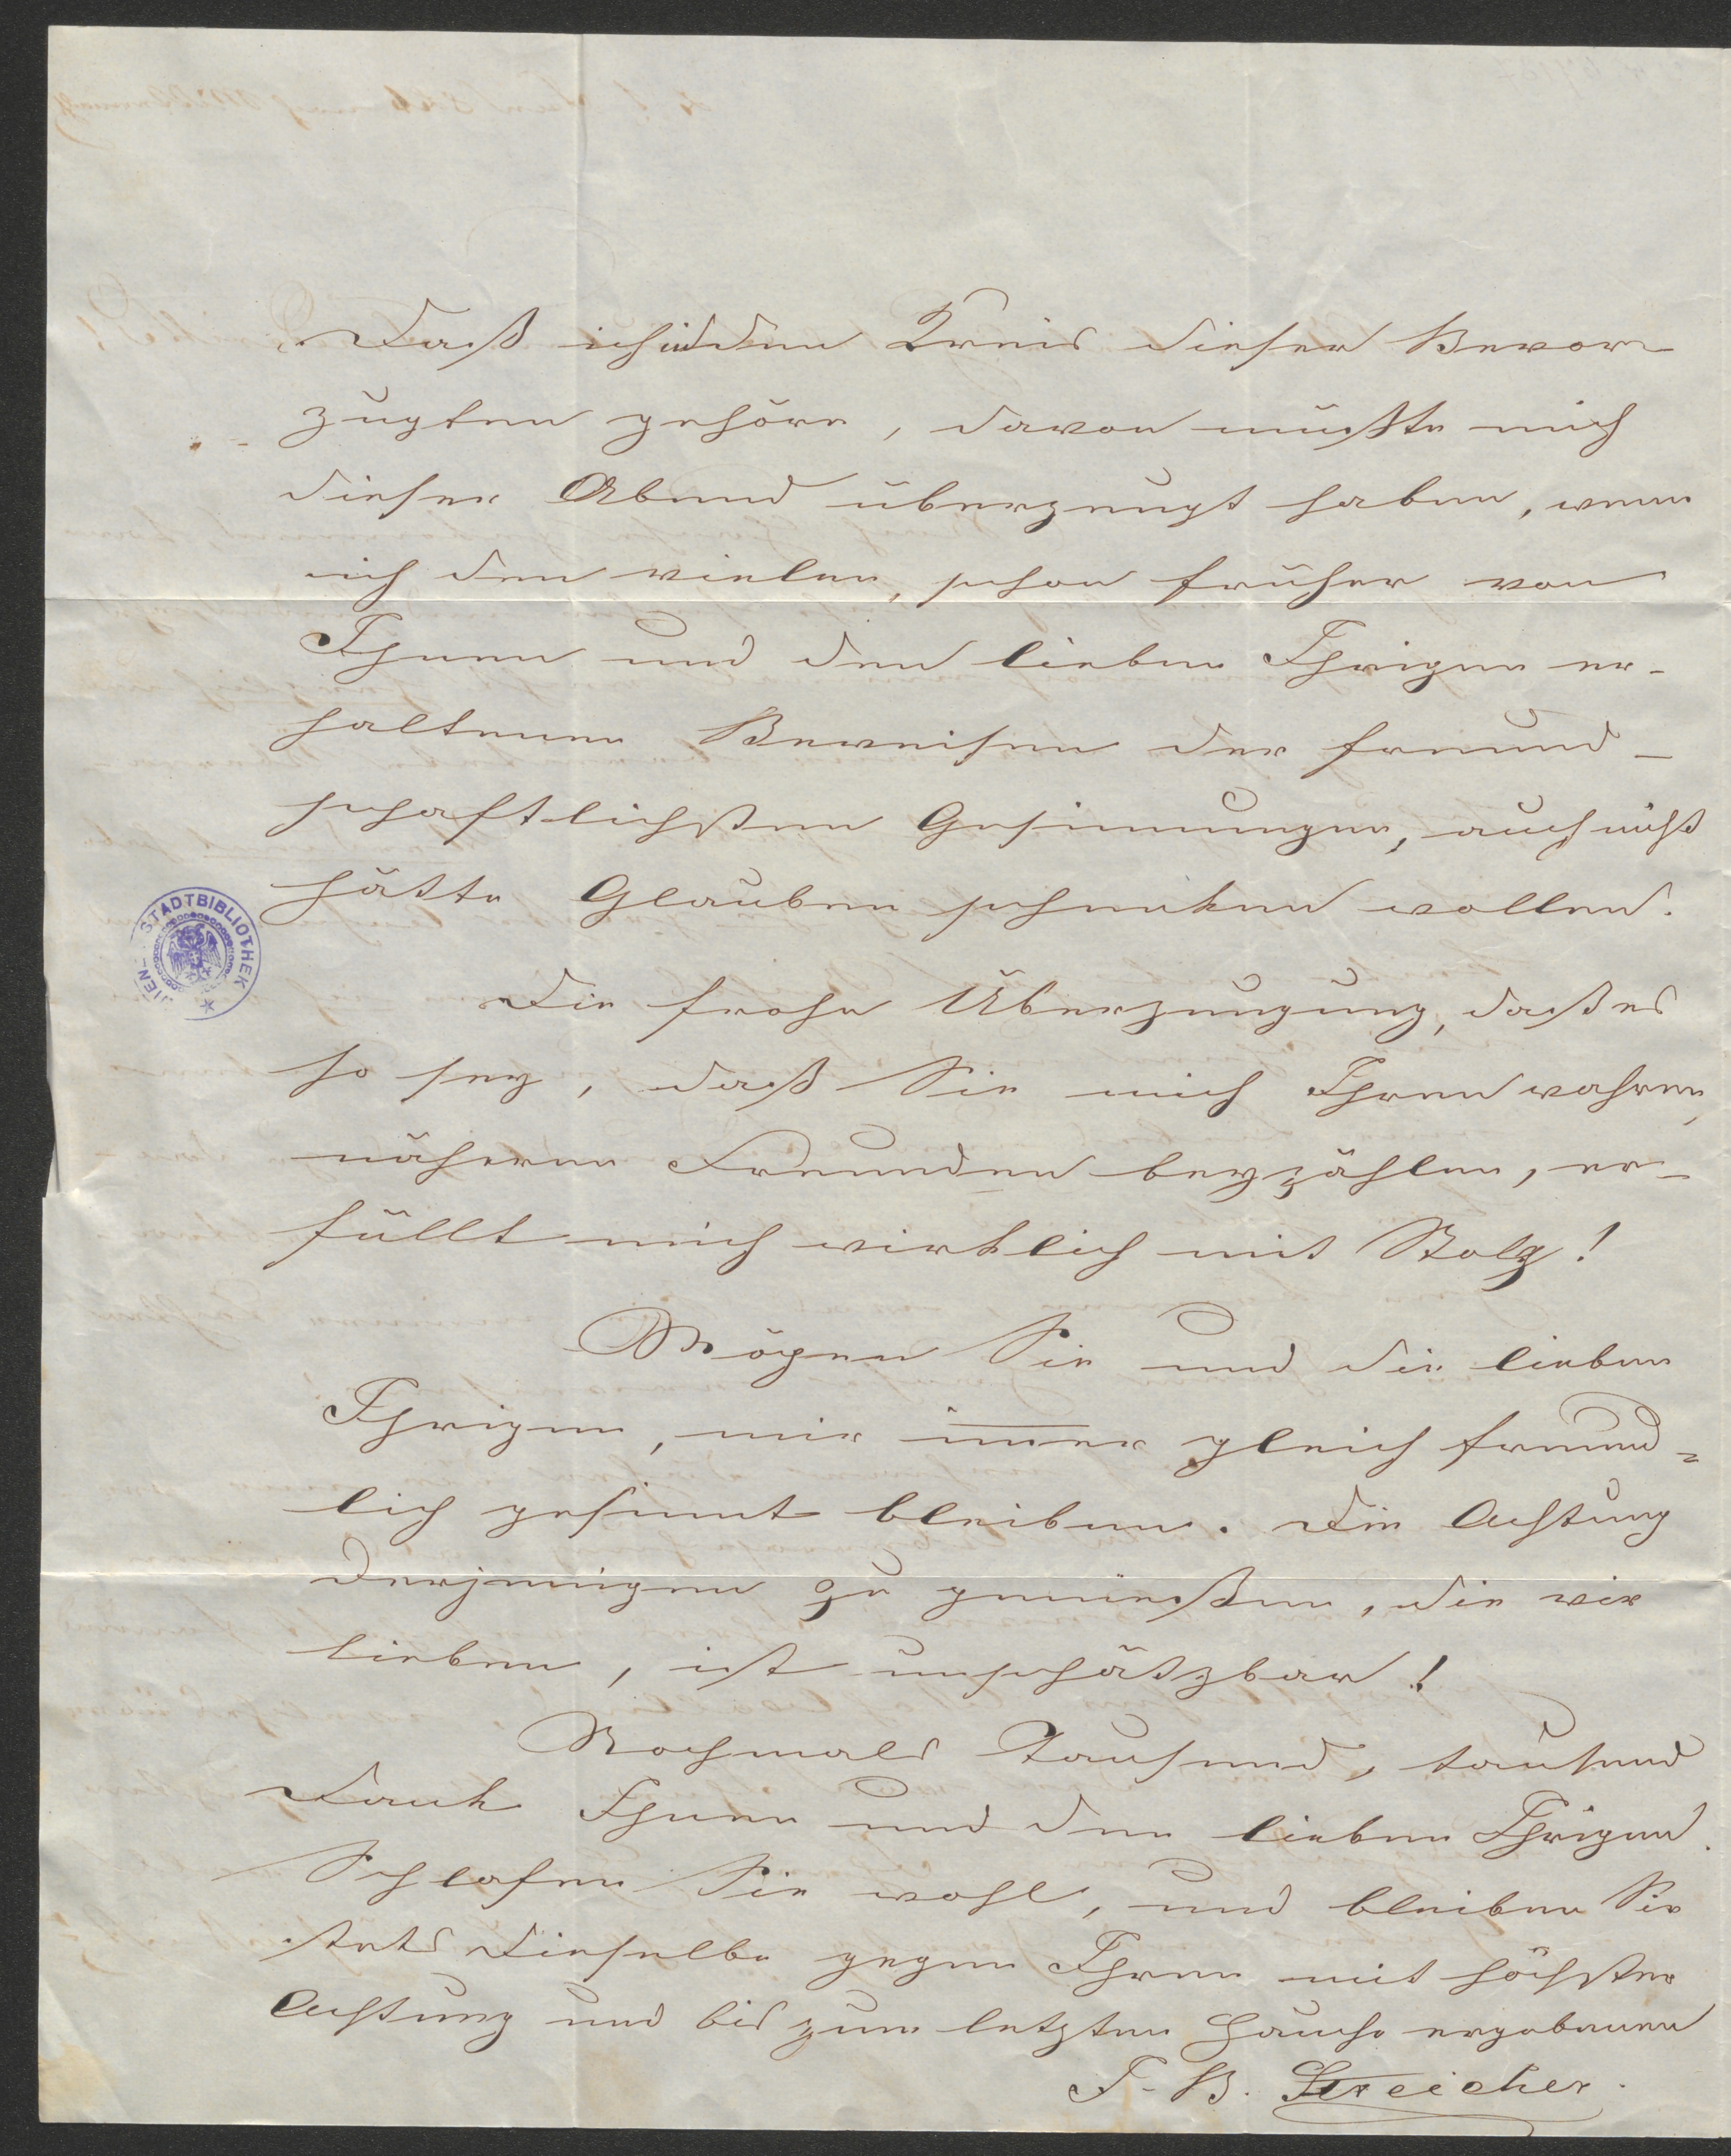 Daß ich in den Kreis dieser Bevor-
zugten gehöre, davon müßte mich
dieser Abend überzeugt haben, wenn
ich den vielen, schon früher von
Ihnen und den lieben Ihrigen er-
haltenen Beweisen der freund-
schaftlichsten Gesinnungen, auch nicht
hätte Glauben schenken wollen.
Die frohe Überzeugung, daß es
so sey, daß Sie mich Ihren wahren,
näheren Freunden beyzählen, er-
füllt mich wirklich mit Stolz!
Mögen Sie und die lieben
Ihrigen, mir im̅er gleich freund=
lich gesinnt bleiben. Die Achtung
derjenigen zu genießen, die wir
lieben, ist unschätzbar!
Nochmals Tausend, tausend
Dank Ihnen und den lieben Ihrigen.
Schlafen Sie wohl, und bleiben Sie
stets Dieselbe gegen Ihren mit höchster
Achtung und bis zum letzten Hauche ergebenen
J. B. Streicher.
WIEN STADTBIBLIOTHEK